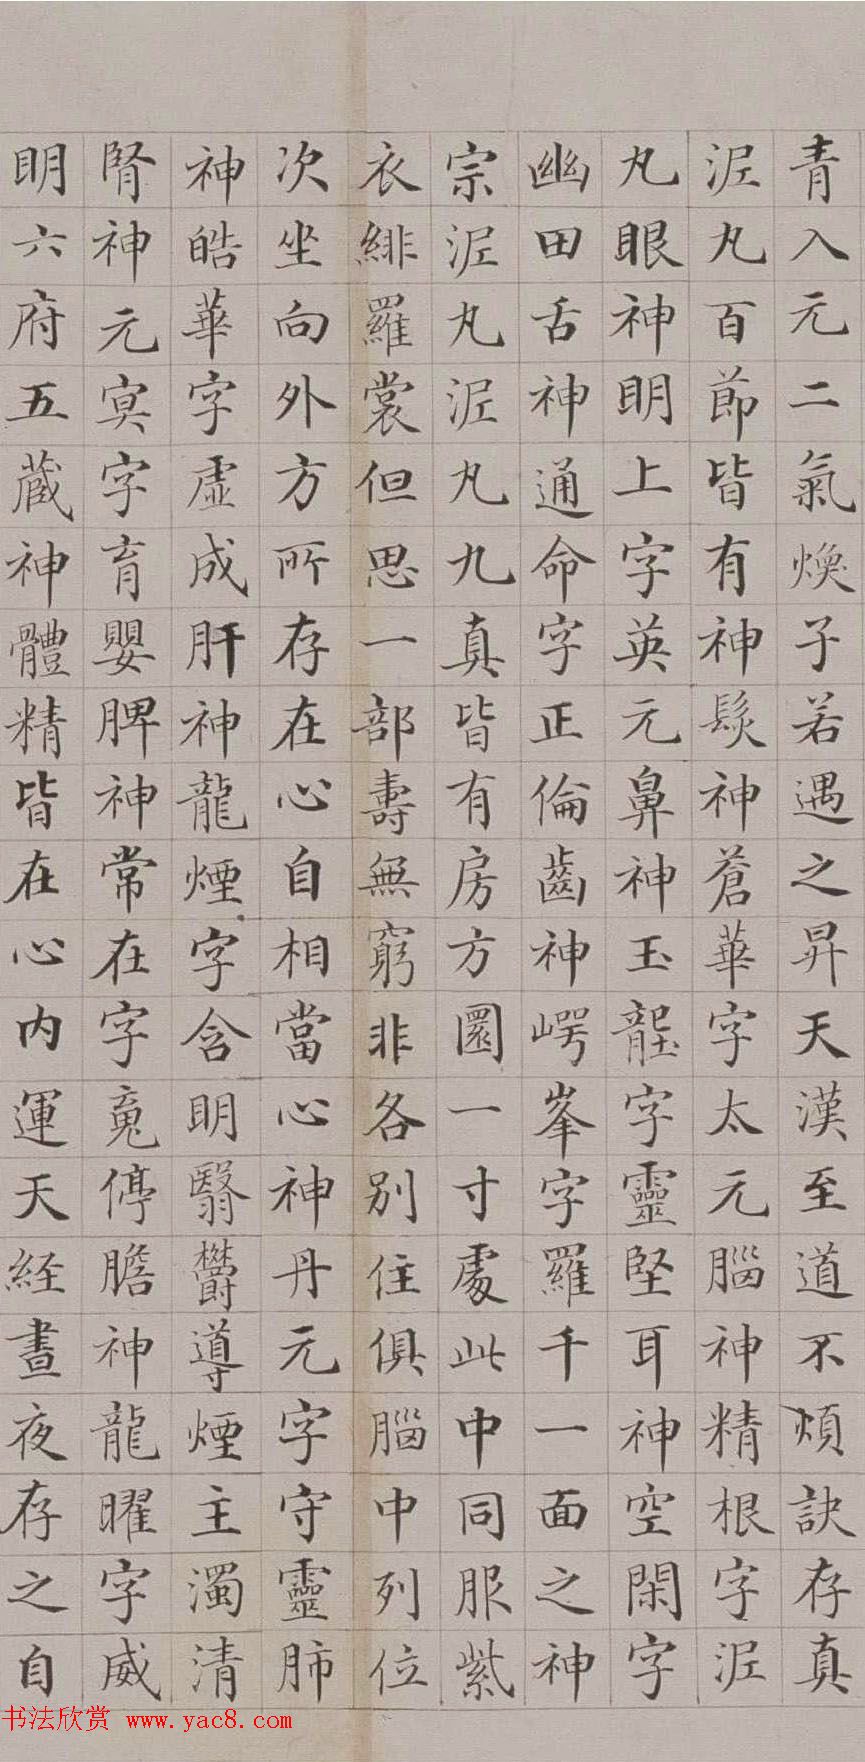 青入元二氣煥子若遇之昇天漢至道不煩訣存真
泥丸百節皆有神髮神蒼華字太元腦神精根字泥
丸眼神明上字英元鼻神玉壟字靈堅耳神空閑字
幽田舌神通命字正倫齒神崿峯字羅千一面之神
宗泥丸泥丸九真皆有房方圓一寸處此中同服紫
衣緋羅裳但思一部壽無窮非各別住俱腦中列位
次坐向外方所存在心自相當心神丹元字守靈肺
神皓華字虛成肝神龍煙字含明翳鬱導煙主濁清
腎神元冥字育嬰脾神常在字䰟停膽神龍曜字威
明六府五藏神體精皆在心內運天經晝夜存之自
书法欣赏 www.yac8.com